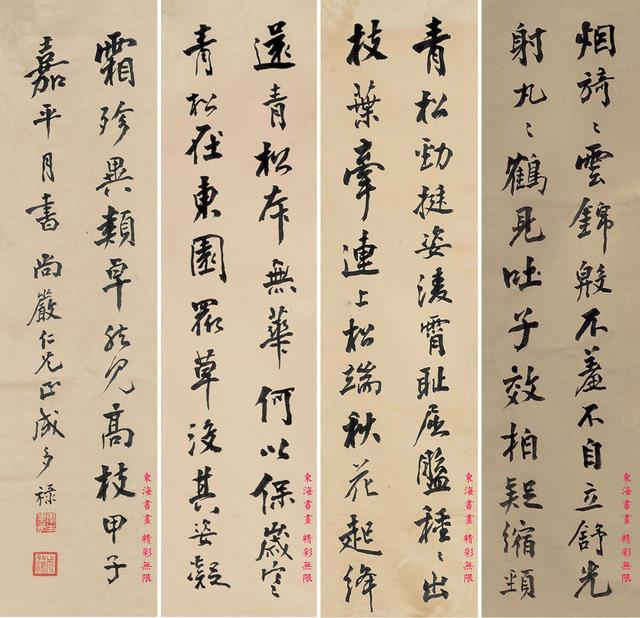 烟旖〻雲錦殷不羞不自立舒光
射丸〻鶴見吐子效柏疑縮頸
東海書畫 精彩無限
青松勁挺姿凌霄恥屈盤種〻出
枝葉牽連上松端秋花起絳
東海書畫 精彩無限
還青松本無華何以保歲寒
青松在東園眾草沒其姿凝
東海書畫 精彩無限
霜殄異類卓然見高枝甲子
嘉平月書尚嚴仁兄正成多祿
東海書畫 精彩無限